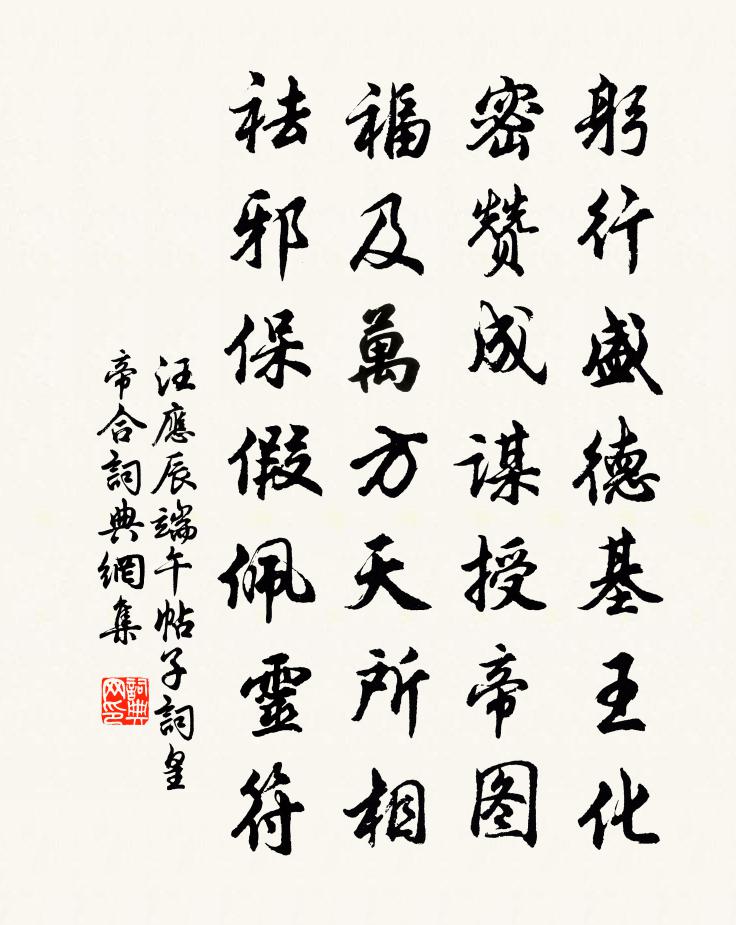 躬行盛德基王化
密赞成谋授帝图
福及萬方天所相
祛邪保假佩靈符
汪應辰端午帖子詞皇
帝合詞典網集
詞典网印